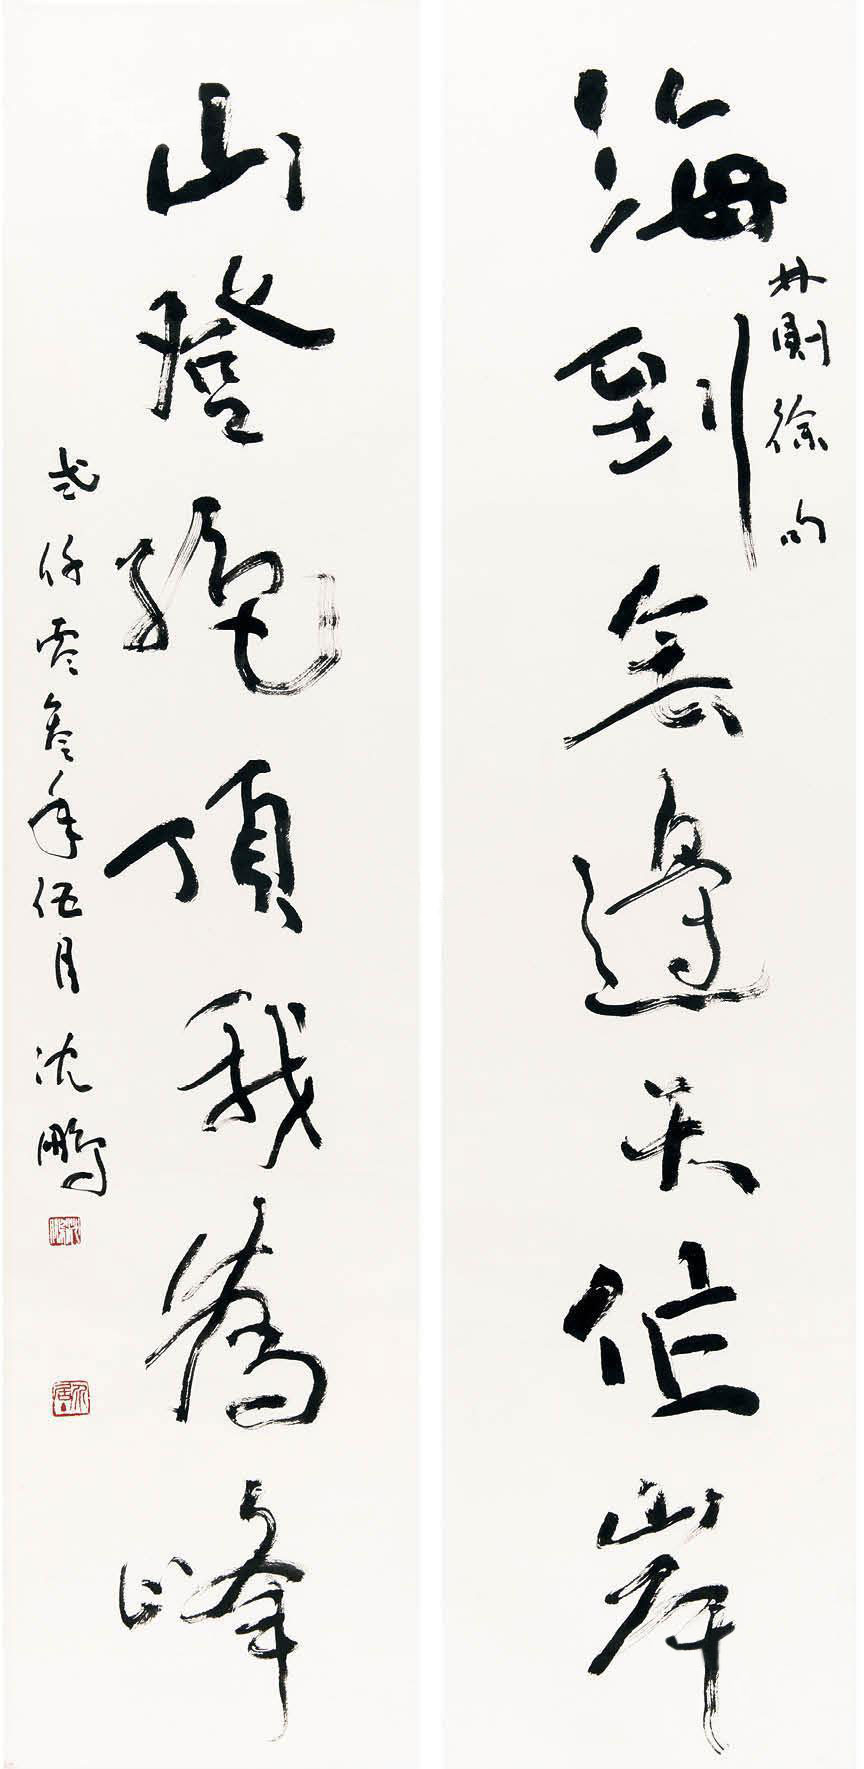 海到無邊天作岸
林則徐句
山登絕頂我為峰
弍仟零叁年伍月 沈鵬